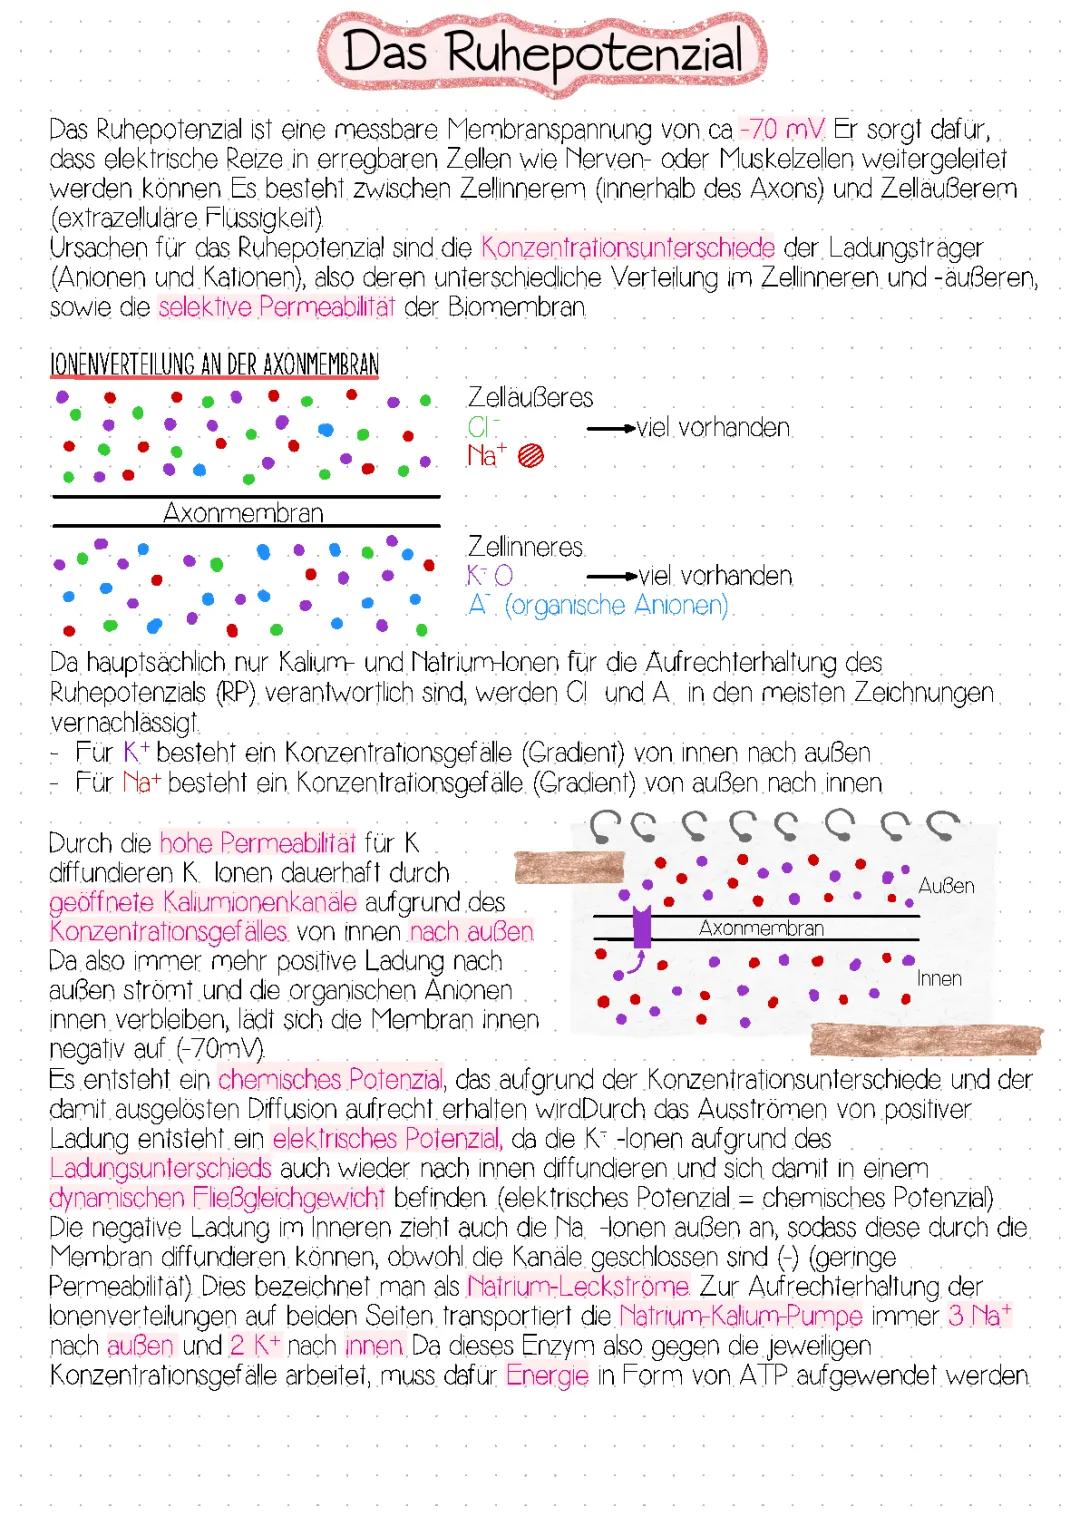 Das Ruhepotenzial
Das Ruhepotenzial ist eine messbare Membranspannung von ca -70 mV. Er sorgt dafür,
dass elektrische Reize in erregbaren Zellen wie Nerven- oder Muskelzellen weitergeleitet
werden können Es besteht zwischen Zellinnerem (innerhalb des Axons) und Zelläußerem
(extrazelluläre Flüssigkeit).
Ursachen für das Ruhepotenzial sind die Konzentrationsunterschiede der Ladungsträger
(Anionen und Kationen), also deren unterschiedliche Verteilung im Zellinneren und -äußeren,
sowie die selektive Permeabilität der Biomembran
IONENVERTEILUNG AN DER AXONMEMBRAN
Zelläußeres
Cl⁻
→viel vorhanden
Na⁺
Axonmembran
Zellinneres
K⁻ O
→viel vorhanden
A⁻ (organische Anionen)
Da hauptsächlich nur Kalium- und Natrium-Ionen für die Aufrechterhaltung des
Ruhepotenzials (RP) verantwortlich sind, werden Cl und A in den meisten Zeichnungen
vernachlässigt.
- Für K⁺ besteht ein Konzentrationsgefälle (Gradient) von innen nach außen
- Für Na⁺ besteht ein Konzentrationsgefälle (Gradient) von außen nach innen
Durch die hohe Permeabilität für K
diffundieren K Ionen dauerhaft durch
geöffnete Kaliumionenkanäle aufgrund des
Konzentrationsgefälles von innen nach außen
Da also immer mehr positive Ladung nach
außen strömt und die organischen Anionen
innen verbleiben, lädt sich die Membran innen
negativ auf (-70mV).
Außen
Axonmembran
Innen
Es entsteht ein chemisches Potenzial, das aufgrund der Konzentrationsunterschiede und der
damit ausgelösten Diffusion aufrecht erhalten wirdDurch das Ausströmen von positiver
Ladung entsteht ein elektrisches Potenzial, da die K⁻ -Ionen aufgrund des
Ladungsunterschieds auch wieder nach innen diffundieren und sich damit in einem
dynamischen Fließgleichgewicht befinden (elektrisches Potenzial = chemisches Potenzial)
Die negative Ladung im Inneren zieht auch die Na -Ionen außen an, sodass diese durch die
Membran diffundieren können, obwohl die Kanäle geschlossen sind (-) (geringe
Permeabilität) Dies bezeichnet man als Natrium-Leckströme. Zur Aufrechterhaltung der
Ionenverteilungen auf beiden Seiten transportiert die Natrium-Kalium-Pumpe immer 3 Na⁺
nach außen und 2 K⁺ nach innen Da dieses Enzym also gegen die jeweiligen
Konzentrationsgefälle arbeitet, muss dafür Energie in Form von ATP aufgewendet werden